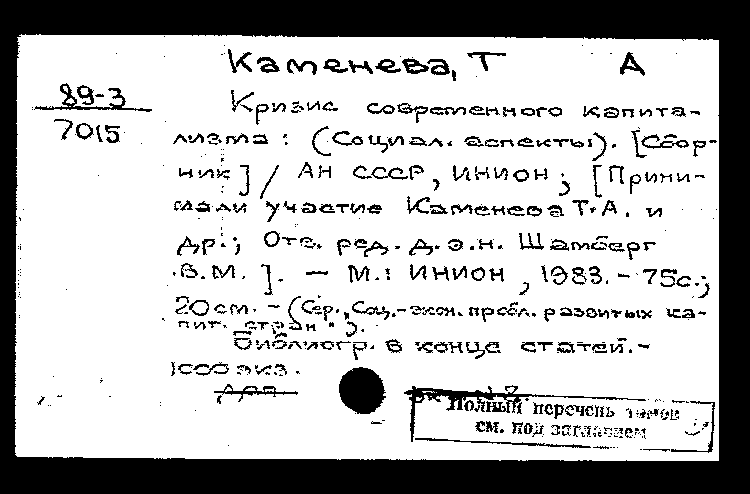 Каменева, Т А
89-3
7015
Кризис современного капита-
лизма: (Социал. аспекты). [Сбор-
ник] / АН СССР, ИНИОН; [Прини-
мали участие Каменева Т.А. и
др.; Отв. ред. д.э.н. Шамберг
В.М.]. - М.: ИНИОН, 1983. - 75с.;
20см. - (Сер. "Соц.-экон. пробл. развитых ка-
пит. стран").
Библиогр. в конце статей. -
1000 экз.
Полный перечень томов
см. под заглавием